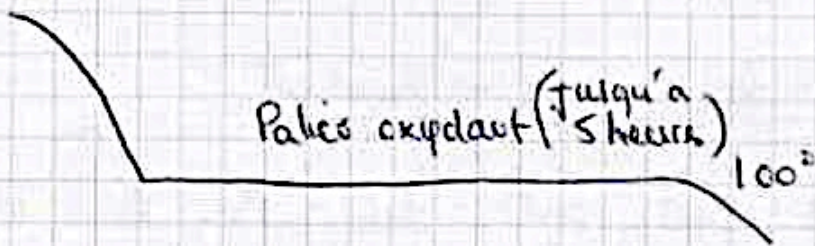 Palier oxydant (jusqu'a
5 heures)
100°